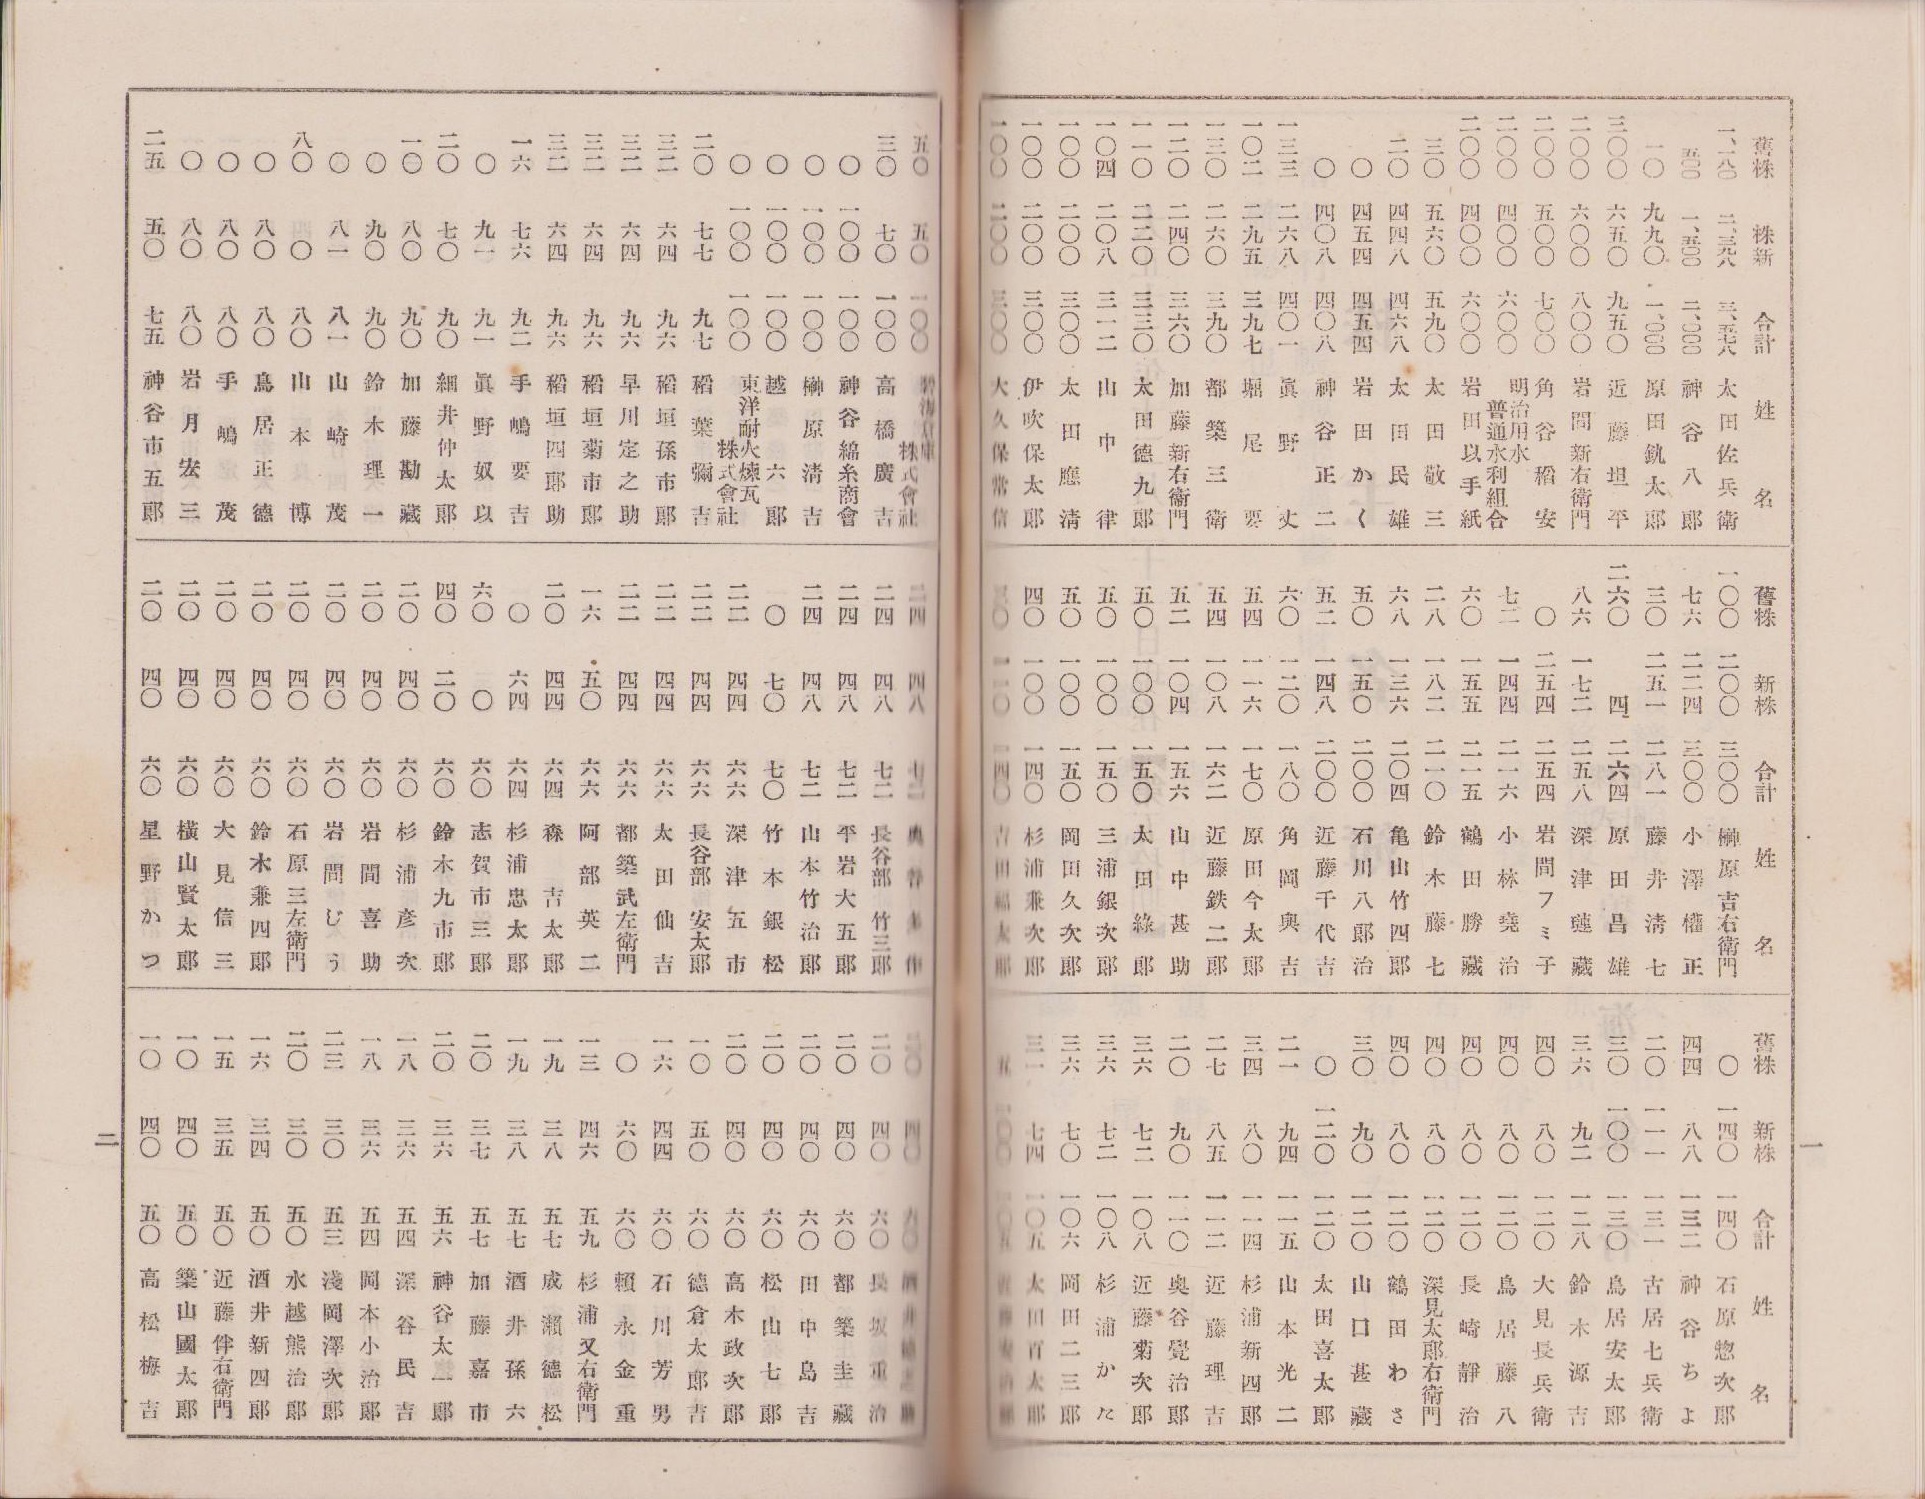 舊株 株新 合計 姓名
一、一八〇 二、三九八 三、五七八 太田佐兵衛
五〇〇 一、五〇〇 二、〇〇〇 神谷八郎
一〇 九九〇 一、〇〇〇 原田釻太郎
三〇〇 六五〇 九五〇 近藤坦平
二〇〇 六〇〇 八〇〇 岩間新右衛門
二〇〇 五〇〇 七〇〇 角谷稻安
二〇〇 四〇〇 六〇〇 明治用水普通水利組合
二〇〇 四〇〇 六〇〇 岩田以手紙
三〇 五六〇 五九〇 太田敬三
二〇 四四八 四六八 太田民雄
〇 四五四 四五四 岩田かく
〇 四〇八 四〇八 神谷正二
一三三 二六八 四〇一 眞野丈
一〇二 二九五 三九七 堀尾要
一三〇 二六〇 三九〇 都築三衛
一二〇 二四〇 三六〇 加藤新右衛門
一一〇 二二〇 三三〇 太田德九郎
一〇四 二〇八 三一二 山中律
一〇〇 二〇〇 三〇〇 太田應清
一〇〇 二〇〇 三〇〇 伊吹保太郎
一〇〇 二〇〇 三〇〇 大久保常信
舊株 新株 合計 姓名
一〇〇 二〇〇 三〇〇 榊原吉右衛門
七六 二二四 三〇〇 小澤權正
三〇 二五一 二八一 藤井淸七
二六〇 四 二六四 原田昌雄
八六 一七二 二五八 深津璉藏
〇 二五四 二五四 岩間フミ子
七二 一四四 二一六 小林堯治
六〇 一五五 二一五 鶴田勝藏
二八 一八二 二一〇 鈴木藤七
六八 一三六 二〇四 亀山竹四郎
五〇 一五〇 二〇〇 石川八郎治
五二 一四八 二〇〇 近藤千代吉
六〇 一二〇 一八〇 角岡與吉
五四 一一六 一七〇 原田今太郎
五四 一〇八 一六二 近藤鉄二郎
五二 一〇四 一五六 山中甚助
五〇 一〇〇 一五〇 太田綠
五〇 一〇〇 一五〇 三浦銀次郎
五〇 一〇〇 一五〇 岡田久次郎
四〇 一〇〇 一四〇 杉浦兼次郎
三〇 一一〇 一四〇 吉田福太郎
舊株 新株 合計 姓名
〇 一四〇 一四〇 石原惣次郎
四四 八八 一三二 神谷ちよ
二〇 一一一 一三一 古居七兵衛
三〇 一〇〇 一三〇 鳥居安太郎
三六 九二 一二八 鈴木源吉
四〇 八〇 一二〇 大見長兵衛
四〇 八〇 一二〇 鳥居藤八
四〇 八〇 一二〇 長崎靜治
四〇 八〇 一二〇 深見太郎右衛門
四〇 八〇 一二〇 鶴田わさ
三〇 九〇 一二〇 山口甚藏
〇 一二〇 一二〇 太田喜太郎
二一 九四 一一五 山本光二
三四 八〇 一一四 杉浦新四郎
二七 八五 一一二 近藤理吉
二〇 九〇 一一〇 奥谷覺治郎
三六 七二 一〇八 近藤菊次郎
三六 七二 一〇八 杉浦かた
三六 七〇 一〇六 岡田二三郎
三一 七四 一〇五 太田百太郎
五 一〇〇 一〇五
一
五〇 五〇 一〇〇 碧海倉庫株式會社
三〇 七〇 一〇〇 高橋廣吉
〇 一〇〇 一〇〇 神谷綿糸商會
〇 一〇〇 一〇〇 榊原淸吉
〇 一〇〇 一〇〇 越六郎
〇 一〇〇 一〇〇 東洋耐火煉瓦株式會社
二〇 七七 九七 稻葉彌吉
三二 六四 九六 稻垣孫市郎
三二 六四 九六 早川定之助
三二 六四 九六 稻垣菊市郎
三二 六四 九六 稻垣四郎助
一六 七六 九二 手嶋要吉
〇 九一 九一 眞野奴以
二〇 七〇 九〇 細井仲太郎
一〇 八〇 九〇 加藤勘藏
〇 九〇 九〇 鈴木理一
〇 八一 八一 山崎茂
八〇 〇 八〇 山本博
〇 八〇 八〇 鳥居正德
〇 八〇 八〇 手嶋茂
〇 八〇 八〇 岩月宏三
二五 五〇 七五 神谷市五郎
二四 四八 七二
二四 四八 七二 長谷部竹三郎
二四 四八 七二 平岩大五郎
二四 四八 七二 山本竹治郎
〇 七〇 七〇 竹本銀松
二二 四四 六六 深津五市
二二 四四 六六 長谷部安太郎
二二 四四 六六 太田仙吉
二二 四四 六六 都築武左衛門
一六 五〇 六六 阿部英二
二〇 四四 六四 森吉太郎
〇 六四 六四 杉浦忠太郎
六〇 〇 六〇 志賀市三郎
四〇 二〇 六〇 鈴木九市郎
二〇 四〇 六〇 杉浦彦次
二〇 四〇 六〇 岩間喜助
二〇 四〇 六〇 岩間じう
二〇 四〇 六〇 石原三左衛門
二〇 四〇 六〇 鈴木兼四郎
二〇 四〇 六〇 大見信三
二〇 四〇 六〇 橫山賢太郎
二〇 四〇 六〇 星野かつ
二〇 四〇 六〇
二〇 四〇 六〇 長坂重治
二〇 四〇 六〇 都築圭藏
二〇 四〇 六〇 田中島吉
二〇 四〇 六〇 松山七郎
二〇 四〇 六〇 高木政次郎
一〇 五〇 六〇 德倉太郎吉
一六 四四 六〇 石川芳男
〇 六〇 六〇 賴永金重
一三 四六 五九 杉浦又右衛門
一九 三八 五七 成瀨德松
一九 三八 五七 酒井孫六
二〇 三七 五七 加藤嘉市
二〇 三六 五六 神谷太一郎
一八 三六 五四 深谷民吉
一八 三六 五四 岡本小治郎
二三 三〇 五三 淺岡澤次郎
二〇 三〇 五〇 水越熊治郎
一六 三四 五〇 酒井新四郎
一五 三五 五〇 近藤伴右衛門
一〇 四〇 五〇 築山國太郎
一〇 四〇 五〇 高松梅吉
二